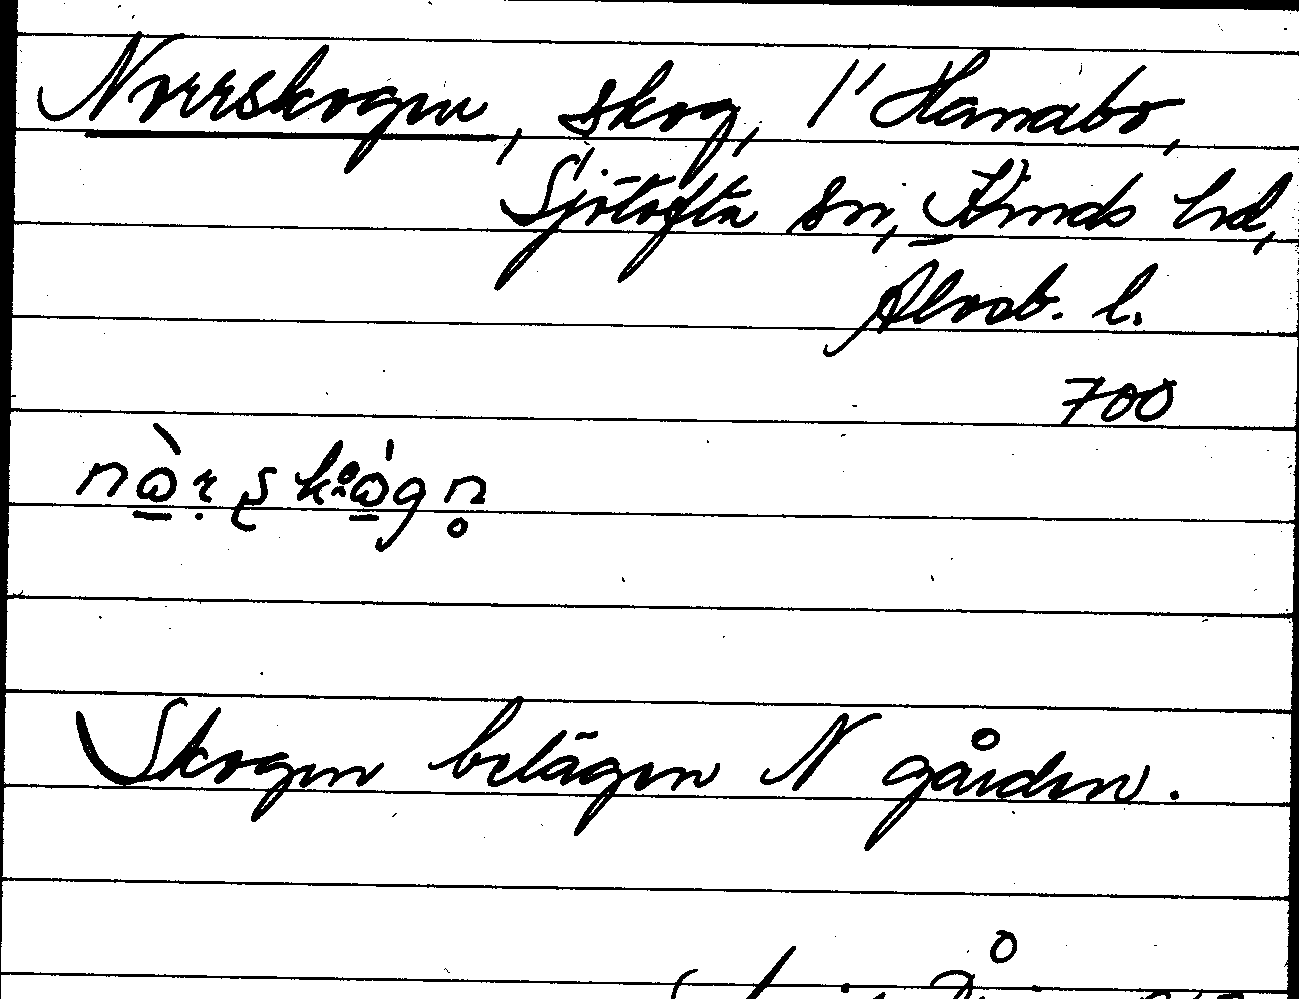 Norrskogen, skog, 1' Hanabo,
Sjötofta sn, Kinds hd,
Älvsb. l.
700
Skogen belägen N gården.